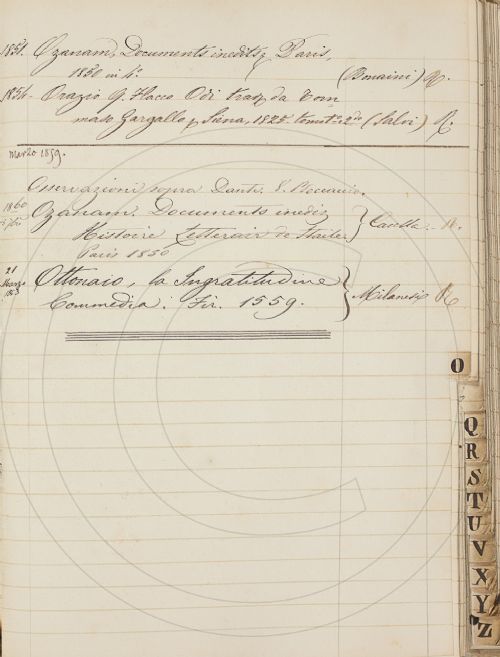 1854. Ozanam, Documents inedits, Paris,
1850 in 4°. (Bonaini) R.
1854. Orazio Q. Flacco Odi trad. da Tom-
maso Gargallo, Siena, 1825. tomo 2do (Salvi) R
Marzo 1859.
Osservazioni sopra Dante.
1860
Ozanam. Documents inedis
Histoire Letterair de Itaile } Casella. R.
Paris 1850
21
Marzo
1863
Ottonaio, la Ingratitudine
Commedia. Fir. 1559. } Milanesi R
O
Q
R
S
T
U
V
X
Y
Z